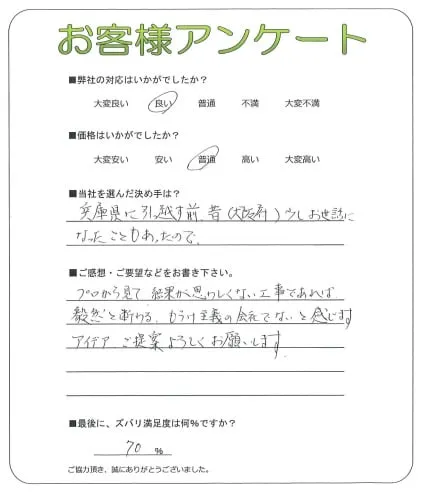 お客様アンケート
■弊社の対応はいかがでしたか？
大変良い 良い 普通 不満 大変不満
■価格はいかがでしたか？
大変安い 安い 普通 高い 大変高い
■当社を選んだ決め手は？
兵庫県に引っ越す前、昔（大阪府）少しお世話に
なったこともあったので、
■ご感想・ご要望などをお書き下さい。
プロから見て 結果が思わしくない工事であれば
毅然と断わる、もうけ主義の会社でないと感じます
アイデア ご提案よろしくお願いします
■最後に、ズバリ満足度は何％ですか？
70 ％
ご協力頂き、誠にありがとうございました。